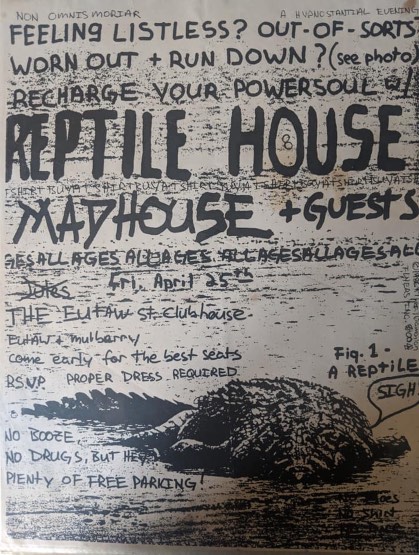 NON OMNIS MORIAR A HYPNOSTANTIAL EVENING
FEELING LISTLESS? OUT-OF-SORTS
WORN OUT + RUN DOWN? (see photo)
RECHARGE YOUR POWERSOUL w/
REPTILE HOUSE
8
TSHIRT BUYATSHIRTBUYATSHIRT
MADHOUSE + GUESTS
GESALLAGES ALLAGES ALLAGESALLAGESALL
Jules Fri, April 25th
THE EUTAW St. Clubhouse
EUTAW + Mulberry
come early for the best seats
R.S.V.P. PROPER DRESS REQUIRED
Fig. 1 -
A REPTILE
SIGH
NO BOOZE,
NO DRUGS, BUT HEY
PLENTY OF FREE PARKING!